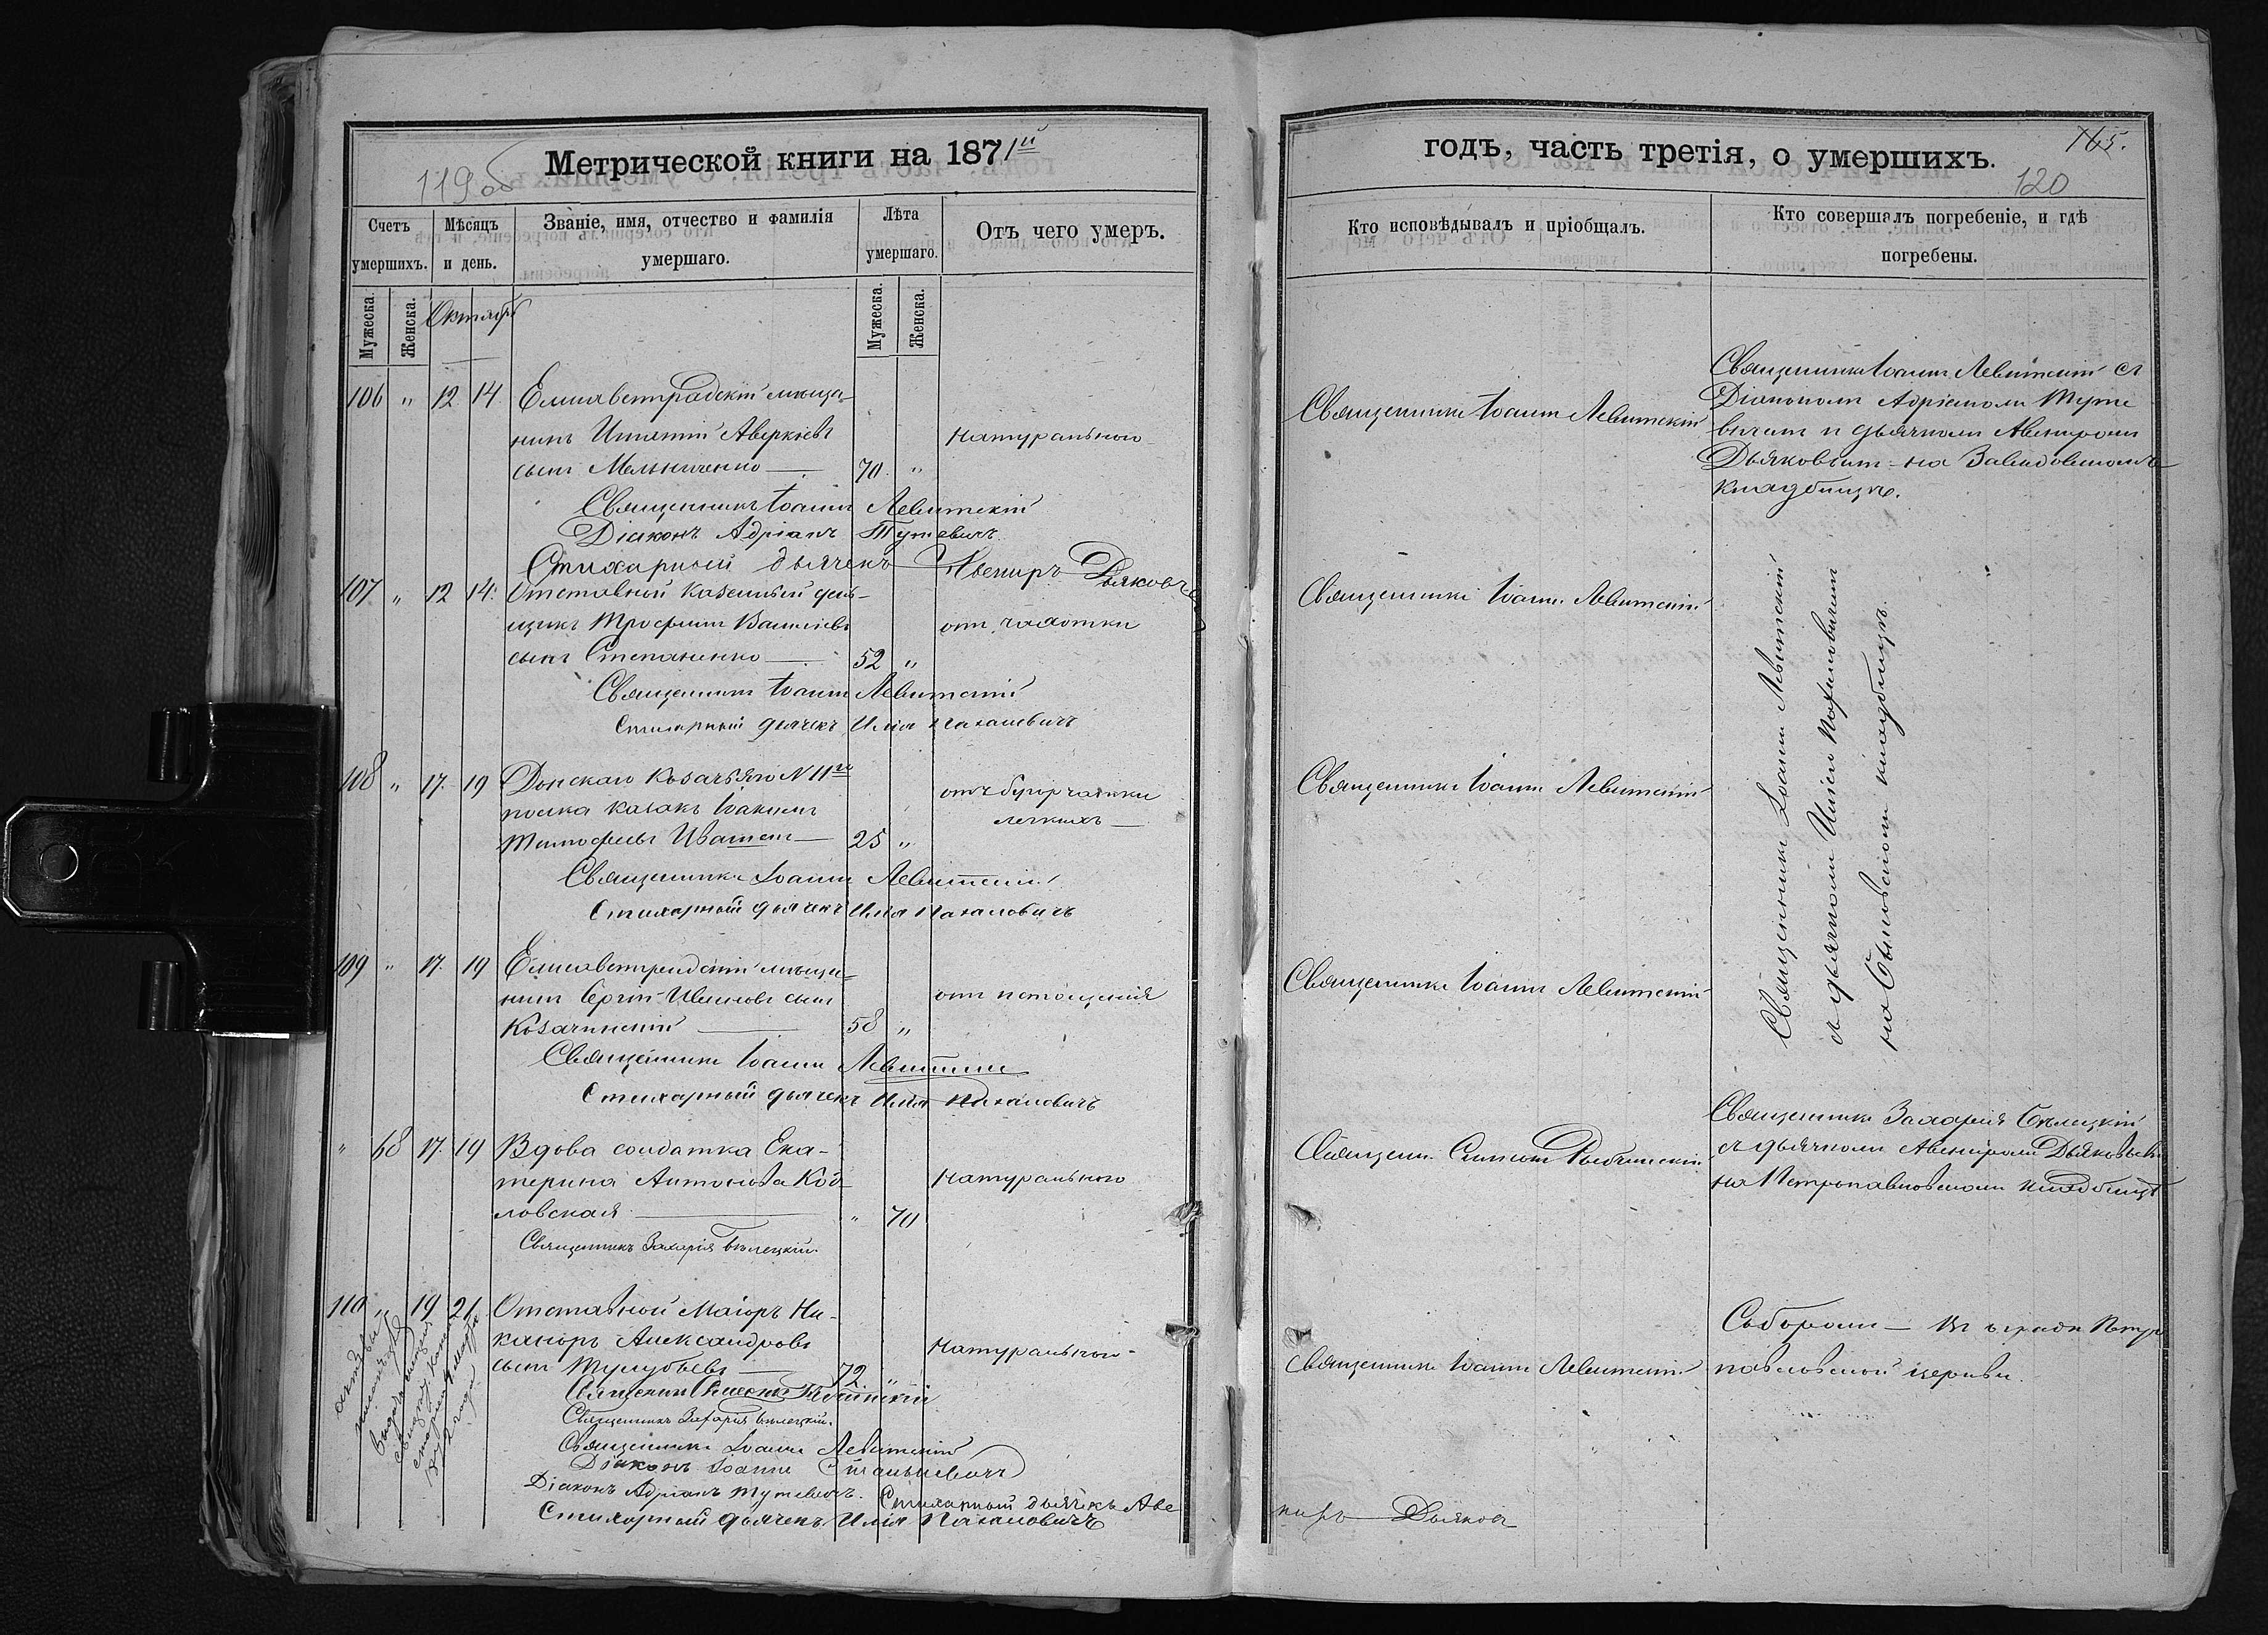 Метрической книги на 1871й
119об
годъ, часть третія, о умершихъ.
165.
120
Счетъ умершихъ.
Мѣсяцъ и день.
Званіе, имя, отчество и фамилія умершаго.
Лѣта умершаго.
Отъ чего умеръ.
Кто исповѣдывалъ и пріобщалъ.
Кто совершалъ погребеніе, и гдѣ погребены.
Мужеска.
Женска.
Октябрь
Мужеска.
Женска.
106 " 12 14 Елисаветградскій мѣща-
нинъ Игнатій Аверкіевъ
сынъ Мельниченко — 70 "
Натуральною
Священникъ Іоаннъ Левитскій
Священникъ Іоаннъ Левитскій съ
Діакономъ Адріаномъ Туте
вичемъ и дьячкомъ Авениромъ
Дьяковымъ на Завадовскомъ
кладбищѣ.
Священникъ Іоаннъ Левитскій
Діаконъ Адріанъ Тутевичъ
Стихарный дьячекъ Авениръ Дьяковъ
107 " 12 14 Отставной казенный день-
щикъ Трофимъ Василіевъ
сынъ Степаненко — 52 "
отъ чахотки
Священникъ Іоаннъ Левитскій
Священникъ Іоаннъ Левитскій
Стихарный дьячекъ Илія
108 " 17 19 Донскаго Козачьяго N 11го
полка казакъ Іоакимъ
Тимофеевъ — 25 "
отъ бугорчатки
легкихъ —
Священникъ Іоаннъ Левитскій
Священникъ Іоаннъ Левитскій
Стихарный дьячекъ Илія
109 " 17 19 Елисаветградскій мѣща-
нинъ Сергій Ивановъ сынъ
Козачинскій — 58 "
отъ истощенія
Священникъ Іоаннъ Левитскій
Священникъ Іоаннъ Левитскій
Стихарный дьячекъ Илія
Священникъ Іоаннъ Левитскій
съ дьячкомъ Иліею
на кладбищѣ.
" 68 17 19 Вдова солдатка Ека-
терина Антонова Коз-
ловская — " 70
Натуральною
Священ. Симеонъ
Священникъ Захарія Бѣлецкій
съ дьячкомъ Авениромъ Дьяковымъ
на Петропавловскомъ кладбищѣ
Священникъ Захарія Бѣлецкій.
110 " 19 21 Отставной Маіоръ Ни-
каноръ Александровъ
сынъ Тулубьевъ — 72 "
Натуральною
Священникъ Іоаннъ Левитскій
Соборомъ — въ оградѣ Петро
павловской церкви.
1872 года
Священникъ Симеонъ
Священникъ Захарія Бѣлецкій.
Священникъ Іоаннъ Левитскій
Діаконъ Іоаннъ
Діаконъ Адріанъ Тутевичъ. Стихарный дьячекъ Аве
ниръ Дьяковъ
Стихарный дьячекъ Илія